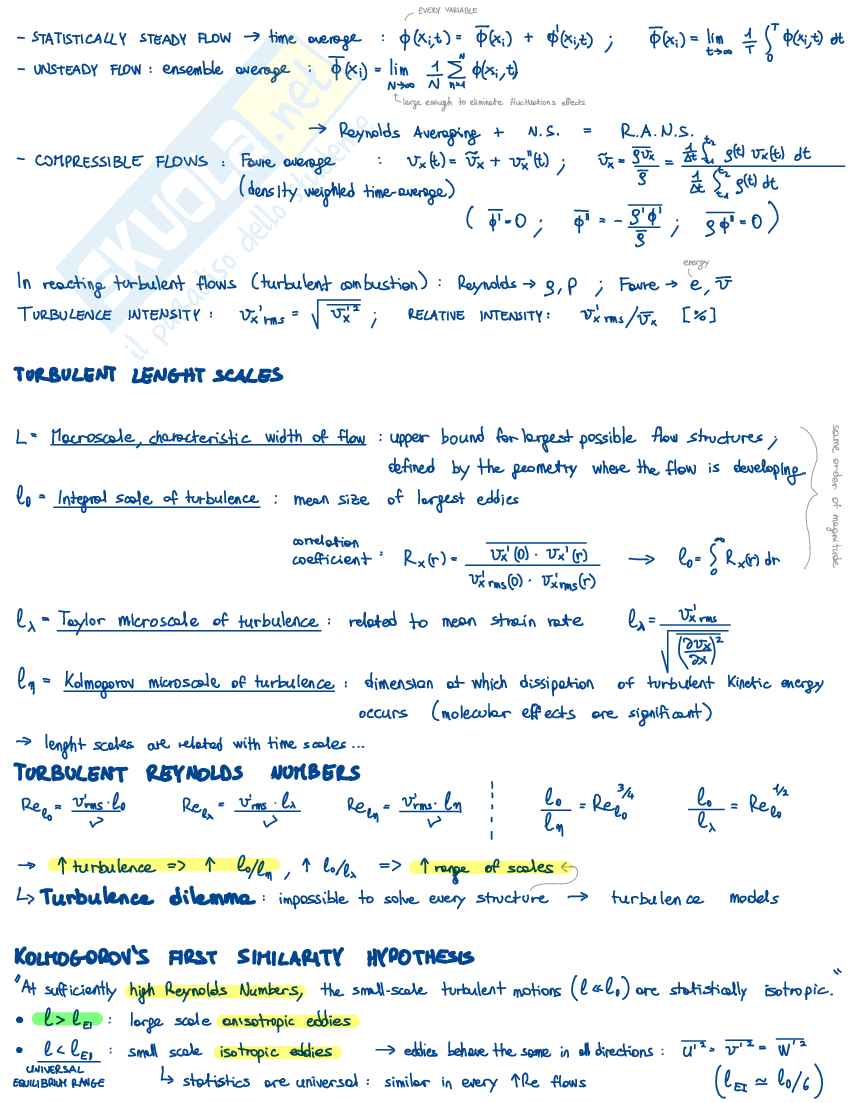 EVERY VARIABLE
- STATISTICALLY STEADY FLOW → time average : ϕ(xᵢ,t) = ϕ̅(xᵢ) + ϕ'(xᵢ,t) ; ϕ̅(xᵢ) = lim t→∞ 1/T ∫₀ᵀ ϕ(xᵢ,t) dt
- UNSTEADY FLOW : ensemble average : ϕ̅(xᵢ) = lim N→∞ 1/N Σ n=1 N ϕ(xᵢ,t)
large enough to eliminate fluctuations effects
→ Reynolds Averaging + N.S. = R.A.N.S.
- COMPRESSIBLE FLOWS : Favre average : vₓ(t) = ṽₓ + vₓ"(t) ; ṽₓ = \overline{ρvₓ}/ρ̅ = (1/Δt ∫ t₁ t₂ ρ(t) vₓ(t) dt)/(1/Δt ∫ t₁ t₂ ρ(t) dt)
(density weighted time-average)
( \overline{ϕ'} = 0 ; \overline{ϕ"} = - \overline{ρ'ϕ'}/ρ̅ ; \overline{ρϕ"} = 0 )
energy
In reacting turbulent flows (turbulent combustion) : Reynolds → ρ, p ; Favre → e, v̅
TURBULENCE INTENSITY : v'ₓ rms = √\overline{v'ₓ²} ; RELATIVE INTENSITY : v'ₓ rms / v̅ₓ [%]
SKUOLA.net
il paradiso dello studente
TURBULENT LENGHT SCALES
L = Macroscale, characteristic width of flow : upper bound for largest possible flow structures ;
defined by the geometry where the flow is developing
same order of magnitude
l₀ = Integral scale of turbulence : mean size of largest eddies
correlation
coefficient : Rₓ(r) = \overline{vₓ'(0) · vₓ'(r)} / (v'ₓ rms(0) · v'ₓ rms(r)) → l₀ = ∫₀^∞ Rₓ(r) dr
l_λ = Taylor microscale of turbulence : related to mean strain rate l_λ = v'ₓ rms / √\overline{(∂vₓ/∂x)²}
l_η = Kolmogorov microscale of turbulence : dimension at which dissipation of turbulent kinetic energy
occurs (molecular effects are significant)
→ lenght scales are related with time scales ...
TURBULENT REYNOLDS NUMBERS
Re_l₀ = v'rms · l₀ / ν Re_lλ = v'rms · l_λ / ν Re_lη = v'rms · l_η / ν l₀/l_η = Re_l₀^3/4 l₀/l_λ = Re_l₀^1/2
→ ↑ turbulence => ↑ l₀/l_η , ↑ l₀/l_λ => ↑ range of scales ←
↳ Turbulence dilemma : impossible to solve every structure → turbulence models
KOLMOGOROV'S FIRST SIMILARITY HYPOTHESIS
"At sufficiently high Reynolds Numbers, the small-scale turbulent motions (l ≪ l₀) are statistically isotropic."
• l > l_EI : large scale anisotropic eddies
• l < l_EI : small scale isotropic eddies → eddies behave the same in all directions : \overline{u'²} = \overline{v'²} = \overline{w'²}
UNIVERSAL
EQUILIBRIUM RANGE
↳ statistics are universal : similar in every ↑Re flows (l_EI ≃ l₀/6)